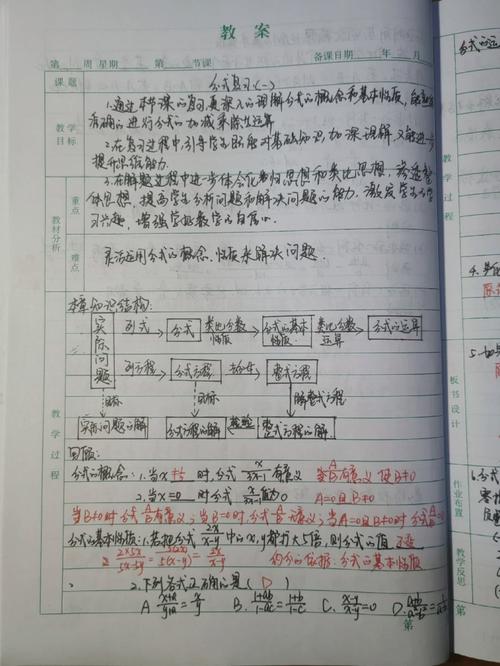 教案
第 周 星期 第 节课 备课日期 年 月
课题 分式复习(一)
教学目标
1.通过本节课的复习,更深入的理解分式的概念和基本性质,
准确的进行分式的加减乘除运算
2.在复习过程中,引导学生 对基础知识,加深理解,又能进一步
提升思维能力.
3.在解题过程中进一步体会化归思想和类比思想,渗透整
体思想,提高学生分析问题和解决问题的能力.激发学生
习兴趣,增强学好数学的自信心.
教材分析
重点
难点
灵活运用分式的概念、性质来解决问题.
教学过程
本章知识结构:
实际问题 列式 分式 类比分数性质 分式的基本性质 类比分数运算 分式的运算
列方程 分式方程 去分母 整式方程
目标 目标 解整式方程
实际问题的解 分式方程的解 检验 整式方程的解
回顾:
分式的概念:1.当x 时,分式 x/3x-1 有意义 A/B有意义 即B≠0
2.当x=0 时 分式 x/3x-1值为0 A=0且B≠0
当B≠0时 分式A/B有意义;当B=0时,分式A/B无意义;当A=0且B≠0时 分式A/B=0
分式的基本性质:1.若把分式 2x/x-y 中的x,y都扩大5倍,则分式的值 不变
2×5x/5x-5y = 5(2x)/5(x-y) = 2x/x-y 约分的依据:分式的基本性质
2.下列各式正确的是( D )
A x+a/y+a = x/y B. 1+ab/1-ac = 1+b/1-c C. x-y/x-y=0
第
分式的运
教学过程
板书设计
作业布置
教学反思
第